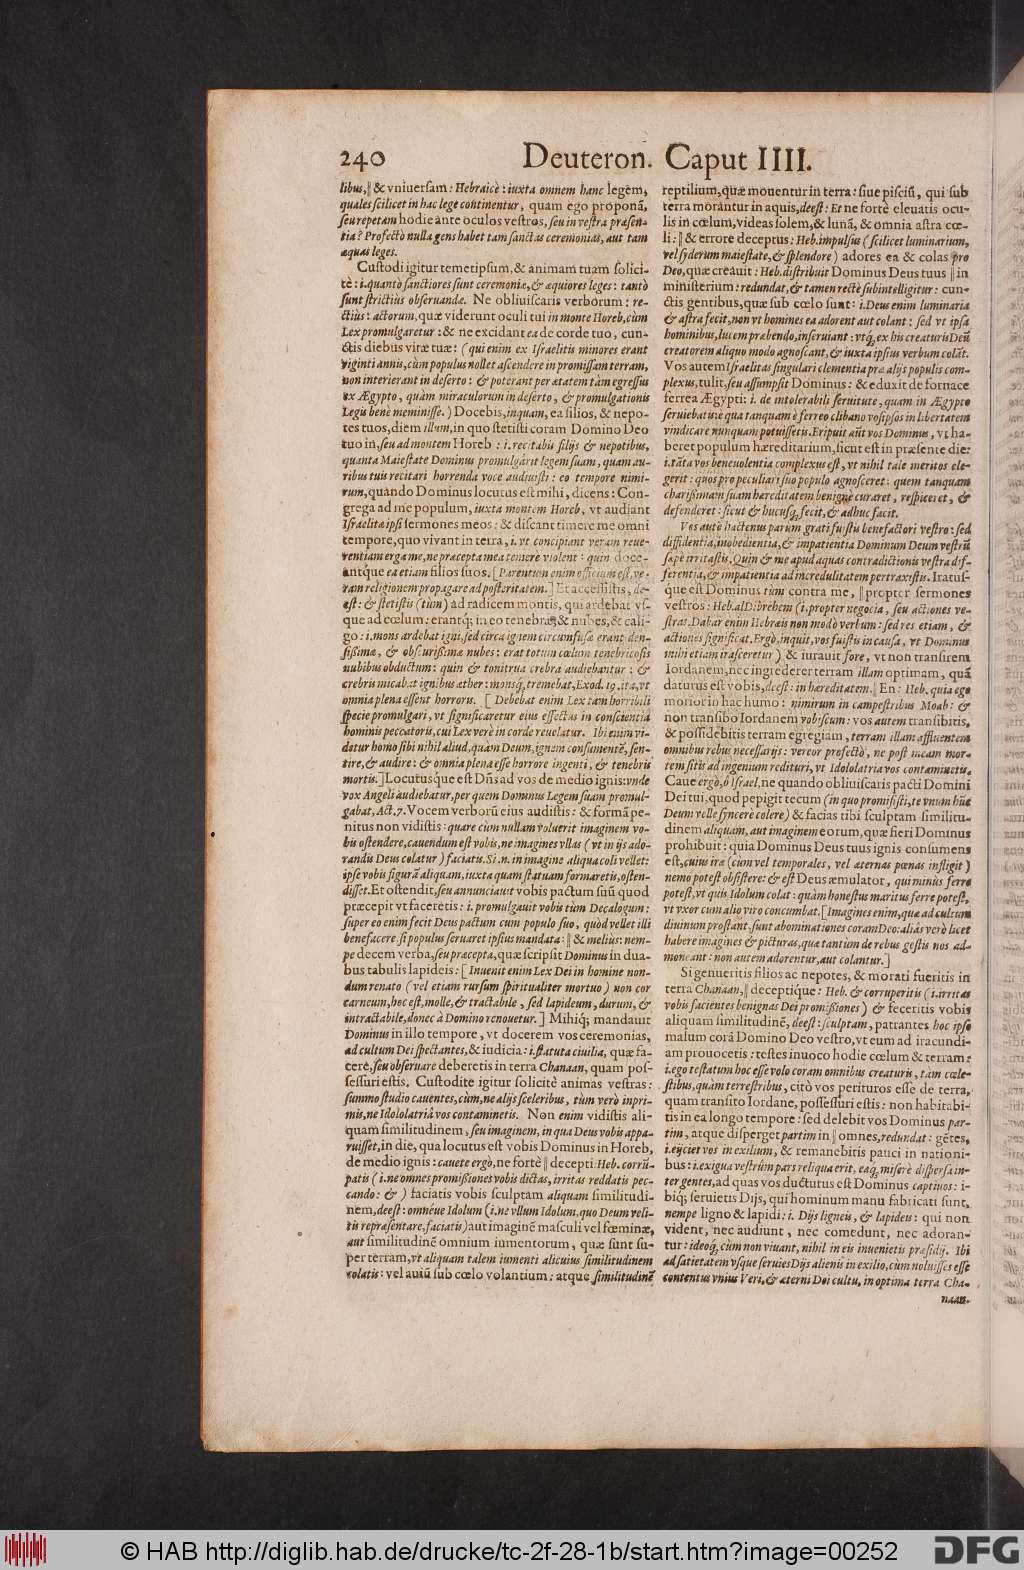 240 Deuteron. Caput IIII.
libus,|| & vniuersam: Hebraicè: iuxta omnem hanc legem,
quales scilicet in hac lege continentur, quam ego proponā,
seu repetam hodie ante oculos vestros, seu in vestra præsen-
tia? Profectò nulla gens habet tam sanctas ceremonias, aut tam
æquas leges.
Custodi igitur temetipsum, & animam tuam solici-
tè: i. quantò sanctiores sunt ceremoniæ, & æquiores leges: tantò
sunt strictiùs obseruandæ. Ne obliuiscaris verborum: re-
ctiùs: actorum, quæ viderunt oculi tui in monte Horeb, cùm
Lex promulgaretur: & ne excidant ea de corde tuo, cun-
ctis diebus vitæ tuæ: (qui enim ex Israelitis minores erant
viginti annis, cùm populus nollet ascendere in promissam terram,
non interierant in deserto: & poterant per ætatem tàm egressus
ex Ægypto, quàm miraculorum in deserto, & promulgationis
Legis benè meminisse.) Docebis, inquam, ea filios, & nepo-
tes tuos, diem illum, in quo stetisti coram Domino Deo
tuo in, seu ad montem Horeb: i. recitabis filijs & nepotibus,
quanta Maiestate Dominus promulgârit legem suam, quam au-
ribus tuis recitari horrenda voce audiuisti: eo tempore nimi-
rum, quando Dominus locutus est mihi, dicens: Con-
grega ad me populum, iuxta montem Horeb, vt audiant
Israelitæ ipsi sermones meos: & discant timere me omni
tempore, quo viuant in terra, i. vt concipiant veram reue-
rentiam erga me, ne præcepta mea temerè violent: quin doce-
antque ea etiam filios suos. [Parentum enim officium est, ve-
ram religionem propagare ad posteritatem.] Et accessistis, de-
est: & stetistis (tùm) ad radicem montis, qui ardebat vs-
que ad cœlum: erantq; in eo tenebræ, & nubes, & cali-
go: i. mons ardebat igni, sed circa ignem circumfusæ erant den-
sissimæ, & obscurissimæ nubes: erat totum cœlum tenebricosis
nubibus obductum: quin & tonitrua crebra audiebantur: &
crebris micabat ignibus æther: monsq́; tremebat, Exod. 19. ita, vt
omnia plena essent horroru. [Debebat enim Lex tam horribili
specie promulgari, vt significaretur eius effectus in conscientia
hominis peccatoris, cui Lex verè in corde reuelatur. Ibi enim vi-
detur homo sibi nihil aliud, quàm Deum, ignem consumentē, sen-
tire, & audire: & omnia plena esse horrore ingenti, & tenebris
mortis.] Locutusque est Dn̄s ad vos de medio ignis: vnde
vox Angeli audiebatur, per quem Dominus Legem suam promul-
gabat, Act. 7. Vocem verborū eius audistis: & formā pe-
nitus non vidistis: quare cùm nullam voluerit imaginem vo-
bis ostendere, cauendum est vobis, ne imagines vllas (vt in ijs ado-
randis Deus colatur) faciatis. Si .n. in imagine aliqua coli vellet:
ipse vobis figurā aliquam, iuxta quam statuam formaretis, osten-
disset. Et ostendit, seu annunciauit vobis pactum suū quod
præcepit vt faceretis: i. promulgauit vobis tùm Decalogum:
super eo enim fecit Deus pactum cum populo suo, quòd vellet illi
benefacere, si populus seruaret ipsius mandata: || & meliùs: nem-
pe decem verba, seu præcepta, quæ scripsit Dominus in dua-
bus tabulis lapideis: [Inuenit enim Lex Dei in homine non-
dum renato (vel etiam rursum spiritualiter mortuo) non cor
carneum, hoc est, molle, & tractabile, sed lapideum, durum, &
intractabile, donec à Domino renouetur.] Mihiq́; mandauit
Dominus in illo tempore, vt docerem vos ceremonias,
ad cultum Dei spectantes, & iudicia: i. statuta ciuilia, quæ fa-
cere, seu obseruare deberetis in terra Chanaan, quam pos-
sessuri estis. Custodite igitur solicitè animas vestras:
summo studio cauentes, cùm, ne alijs sceleribus, tùm verò inpri-
mis, ne Idololatriâ vos contaminetis. Non enim vidistis ali-
quam similitudinem, seu imaginem, in qua Deus vobis appa-
ruisset, in die, qua locutus est vobis Dominus in Horeb,
de medio ignis: cauete ergò, ne fortè || decepti: Heb. corrū-
patis (i. ne omnes promissiones vobis dictas, irritas reddatis pec-
cando: &) faciatis vobis sculptam aliquam similitudi-
nem, deest: omnéue Idolum (i. ne vllum Idolum, quo Deum veli-
tis repræsentare, faciatis) aut imaginē masculi vel fœminæ,
aut similitudinē omnium iumentorum, quæ sunt su-
per terram, vt aliquam talem iumenti alicuius similitudinem
colatis: vel auiū sub cœlo volantium: atque similitudinē
reptilium, quæ mouentur in terra: siue pisciū, qui sub
terra morantur in aquis, deest: Et ne fortè eleuatis ocu-
lis in cœlum, videas solem, & lunā, & omnia astra cœ-
li: || & errore deceptus: Heb. impulsus (scilicet luminarium,
vel syderum maiestate, & splendore) adores ea & colas pro
Deo, quæ creauit: Heb. distribuit Dominus Deus tuus || in
ministerium: redundat, & tamen rectè subintelligitur: cun-
ctis gentibus, quæ sub cœlo sunt: i. Deus enim luminaria
& astra fecit, non vt homines ea adorent aut colant: sed vt ipsa
hominibus, lucem præbendo, inseruiant: vtq́; ex his creaturis Deū
creatorem aliquo modo agnoscant, & iuxta ipsius verbum colāt.
Vos autem Israelitas singulari clementia præ alijs populis com-
plexus, tulit, seu assumpsit Dominus: & eduxit de fornace
ferrea Ægypti: i. de intolerabili seruitute, quam in Ægypto
seruiebatis: è qua tanquam è ferreo clibano vosipsos in libertatem
vindicare nunquam potuissetis. Eripuit aūt vos Dominus, vt ha-
beret populum hæreditarium, sicut est in præsente die:
i. tāta vos beneuolentia complexus est, vt nihil tale meritos ele-
gerit: quos pro peculiari suo populo agnosceret: quem tanquam
charissimam suam hæreditatem benignè curaret, respiceret, &
defenderet: sicut & hucusq́; fecit, & adhuc facit.
Vos autē hactenus parùm grati fuistis benefactori vestro: sed
diffidentia, inobedientia, & impatientia Dominum Deum vestrū
sæpè irritastis. Quin & me apud aquas contradictionis vestra dif-
ferentia, & impatientia ad incredulitatem pertraxistis. Iratus-
que est Dominus tùm contra me, || propter sermones
vestros: Heb. al Dibrehem (i. propter negocia, seu actiones ve-
stras. Dabar enim Hebræis non modò verbum: sed res etiam, &
actiones significat. Ergò, inquit, vos fuistis in causa, vt Dominus
mihi etiam irasceretur) & iurauit fore, vt non transirem
Iordanem, nec ingrederer terram illam optimam, quā
daturus est vobis, deest: in hæreditatem. || En: Heb. quia ego
morior in hac humo: nimirum in campestribus Moab: &
non transibo Iordanem vobiscum: vos autem transibitis,
& possidebitis terram egregiam, terram illam affluentem
omnibus rebus necessarijs: vereor profectò, ne post meam mor-
tem sitis ad ingenium redituri, vt Idololatria vos contaminetis.
Caue ergò, ô Israel, ne quando obliuiscaris pacti Domini
Dei tui, quod pepigit tecum (in quo promisisti, te vnum hūc
Deum velle syncerè colere) & facias tibi sculptam similitu-
dinem aliquam, aut imaginem eorum, quæ fieri Dominus
prohibuit: quia Dominus Deus tuus ignis consumens
est, cuius iræ (cùm vel temporales, vel æternas pœnas infligit)
nemo potest obsistere: & est Deus æmulator, qui minùs ferre
potest, vt quis Idolum colat: quàm honestus maritus ferre potest,
vt vxor cum alio viro concumbat. [Imagines enim, quæ ad cultum
diuinum prostant, sunt abominationes coram Deo: aliàs verò licet
habere imagines & picturas, quæ tantùm de rebus gestis nos ad-
moneant: non autem adorentur, aut colantur.]
Si genueritis filios ac nepotes, & morati fueritis in
terra Chanaan, || deceptique: Heb. & corruperitis (i. irritas
vobis facientes benignas Dei promissiones) & feceritis vobis
aliquam similitudinē, deest: sculptam, patrantes hoc ipso
malum corā Domino Deo vestro, vt eum ad iracundi-
am prouocetis: testes inuoco hodie cœlum & terram:
i. ego testatum hoc esse volo coram omnibus creaturis, tàm cœle-
stibus, quàm terrestribus, citò vos perituros esse de terra,
quam transito Iordane, possessuri estis: non habitabi-
tis in ea longo tempore: sed delebit vos Dominus par-
tim, atque disperget partim in || omnes, redundat: gētes,
i. eijciet vos in exilium, & remanebitis pauci in nationi-
bus: i. exigua vestrûm pars reliqua erit, eaq́; miserè dispersa in-
ter gentes, ad quas vos ducturus est Dominus captiuos: i-
biq́; seruietis Dijs, qui hominum manu fabricati sunt,
nempe ligno & lapidi: i. Dijs ligneis, & lapideis: qui non
vident, nec audiunt, nec comedunt, nec adoran-
tur: ideoq́; cùm non viuant, nihil in eis inuenietis præsidij. Ibi
ad satietatem vsque seruies Dijs alienis in exilio, cùm noluisses esse
contentus vnius Veri, & æterni Dei cultu, in optima terra Cha-
naan.
© HAB http://diglib.hab.de/drucke/tc-2f-28-1b/start.htm?image=00252
DFG